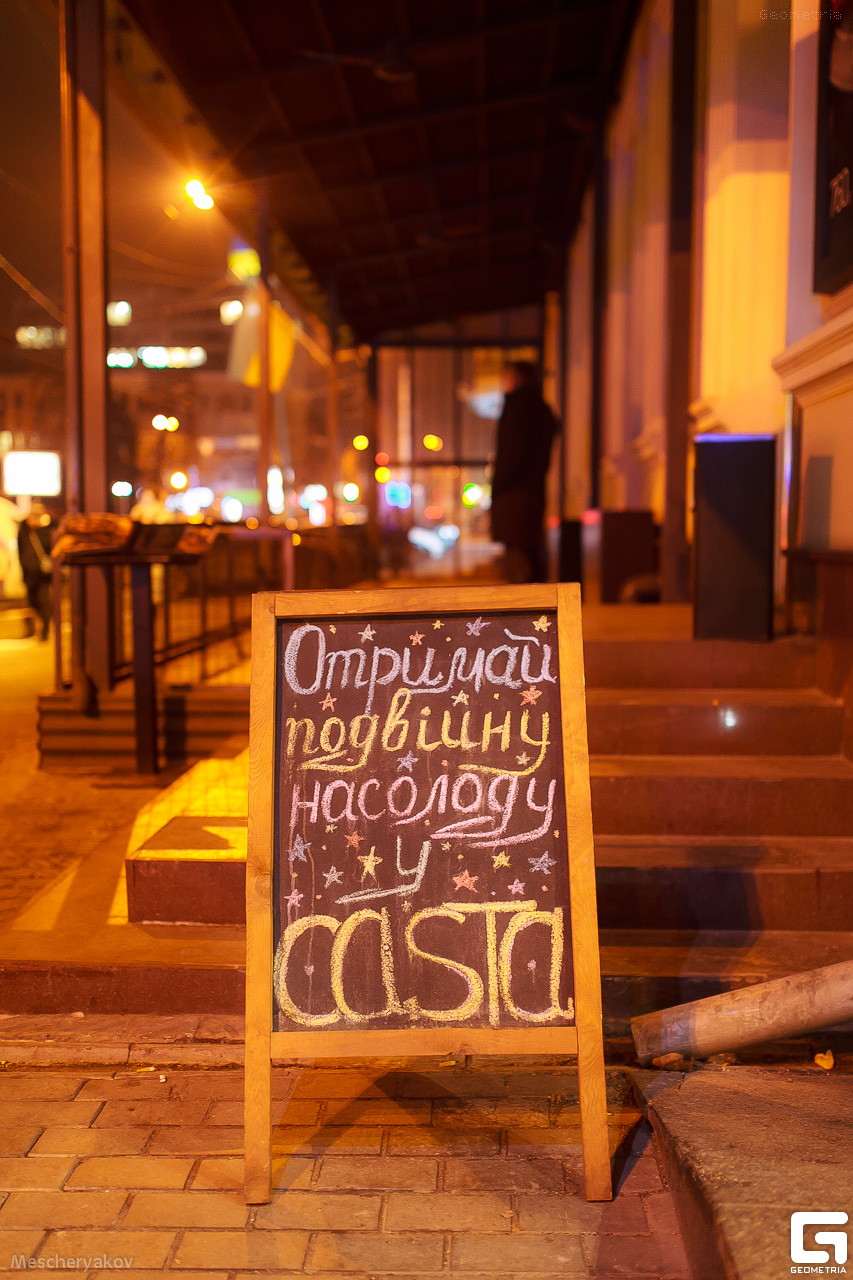 Geometria
760
Отримай
подвійну
насолоду
у
casta
Mescheryakov
GEOMETRIA